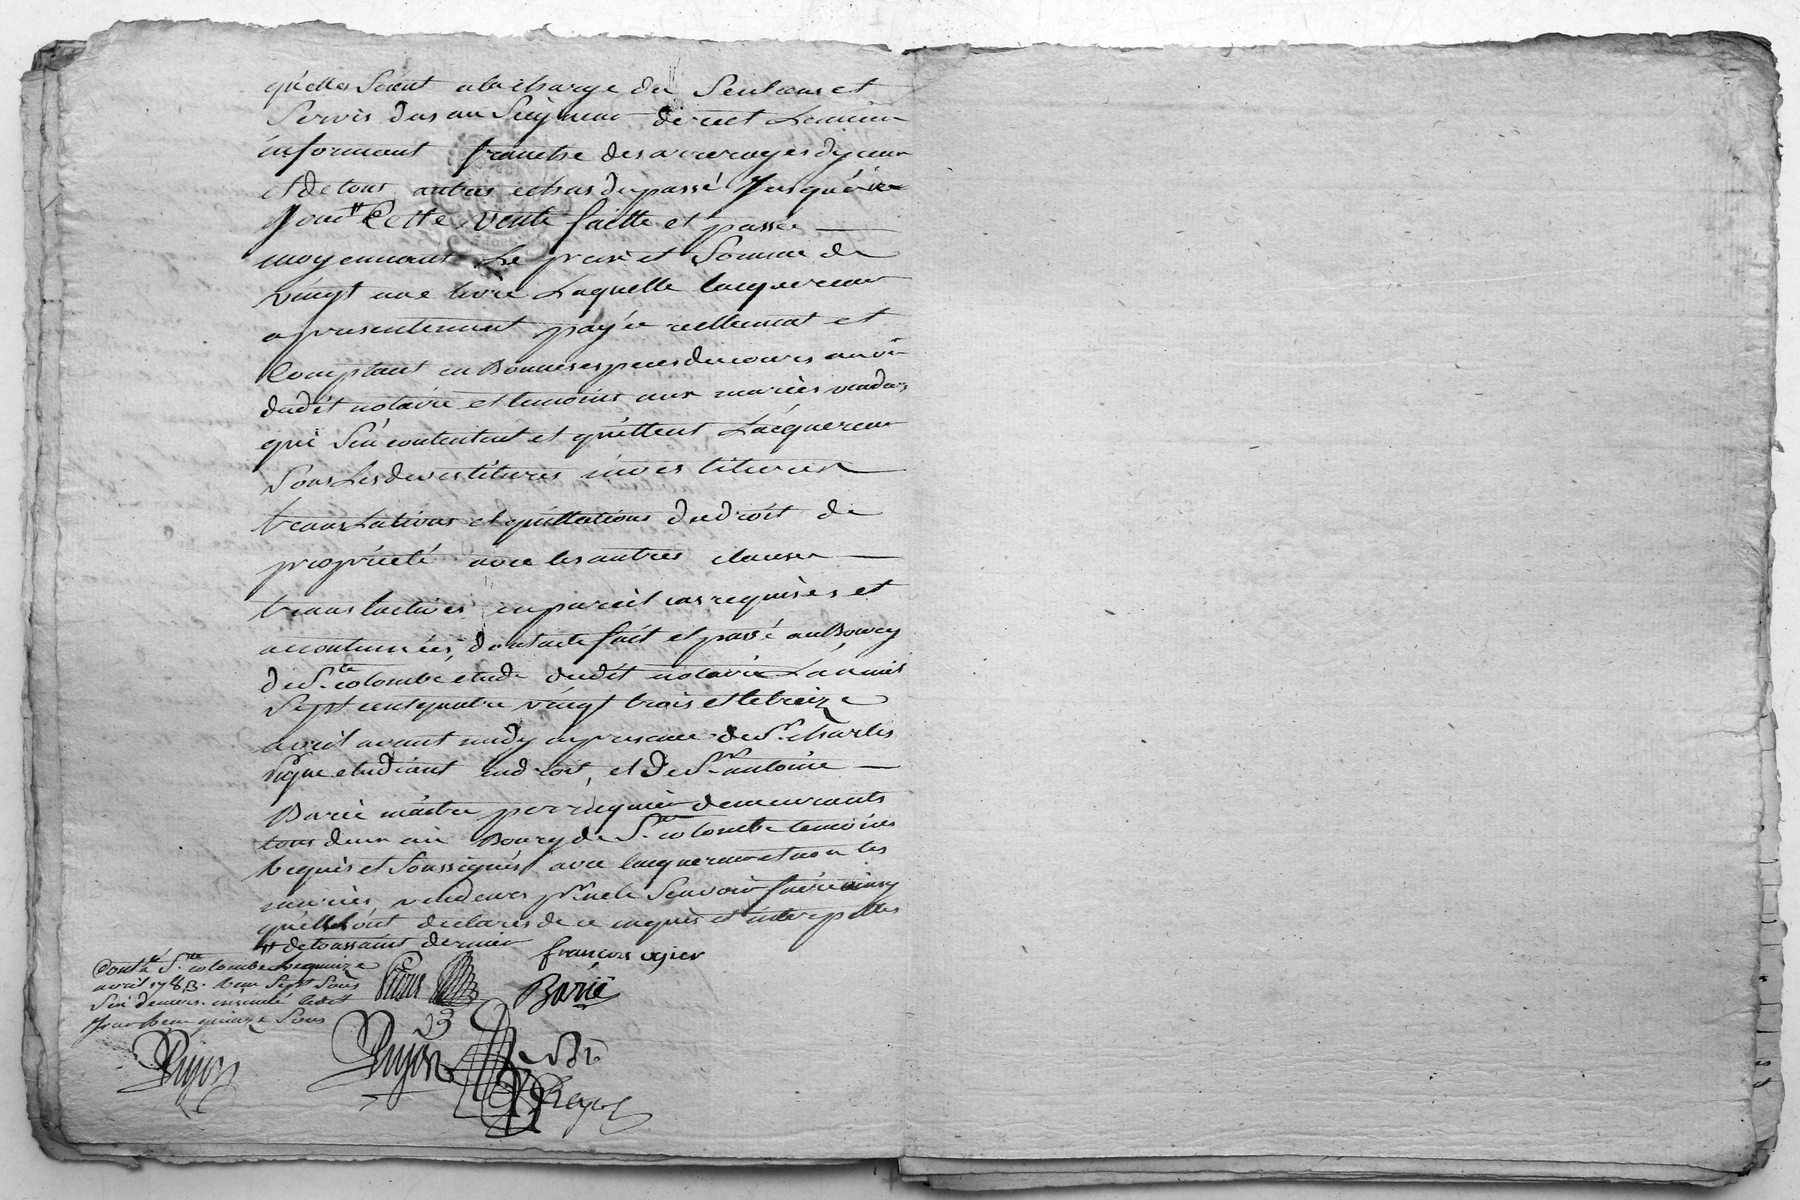 qu'elles soient a la charge du Sensaur et
Servis dus au Seigneur direct Le mieux
informant franche des arrerages dyceux
et de tous autres echus du passé Jusqu'à ce
Jour # Cette vente faitte et passée
moyennant Le prix et Somme de
vingt une livre Laquelle lacquereur
a presentement payée réellement et
Comptant en Bonnes especes de cours au vû
dudit notaire et temoins aux mariés vendeurs
qui S'en contentent et quittent L'acquereur
Sous Les devestitures investitures
translations et quittations du droit de
propriété avec les autres clauses
translatives en pareil cas requises et
accoutumées, dont acte fait et passé au Bourg
de S.te colombe etude dudit notaire L'an mil
Sept cent quatre vingt trois et le treize
avril avant midy en presence de S.r charles
etudiant en droit, et de S.r antoine
Barié maître perruquier demeurants
tous deux au Bourg de S.te colombe temoins
requis et Soussignés avec lacquereur et non les
mariés vendeurs p.r ne le Scavoir faire ainsy
qu'ils ont declarés de ce enquis et interpellés
# de toussaint dernier
francois ogier
Cont.lé à S.te colombe le quinze
avril 1783. Reçu Sept Sous
Six deniers. insinué ledit
Jour Reçu quinze Sous
Barié